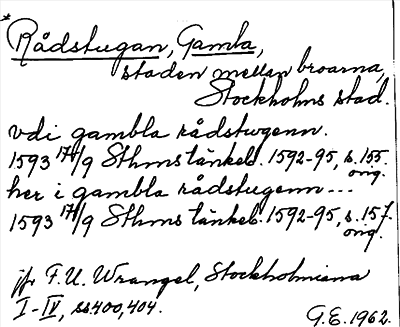 * Rådstugan, Gamla,
staden mellan broarna,
Stockholms stad.
vdi gambla rådstwgenn.
1593 17/9 Sthms tänkeb. 1592-95, s. 155.
orig.
her i gambla rådstugenn ...
1593 17/9 Sthms tänkeb. 1592-95, s. 157.
orig.
jfr F. U. Wrangel, Stockholmiana
I-IV, ss 400, 404.
G.E. 1962.